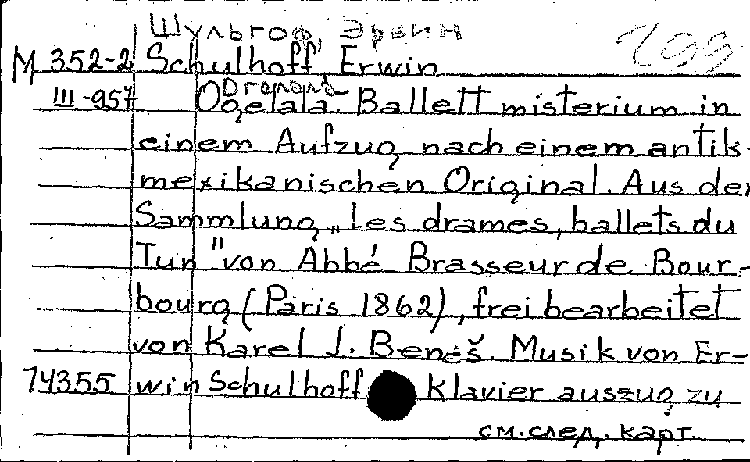 Шульгоф, Эрвин
M 352-2 Schulhoff, Erwin
III-957 Ogelala. Ballettmisterium in
einem Aufzug nach einem antik-
mexikanischen Original. Aus der
Sammlung „les drames, ballets du
Tun" von Abbé Brasseur de Bour-
bourg (Paris 1862), frei bearbeitet
von Karel J. Beneš. Musik von Er-
14355 win Schulhoff Klavierauszug zu
см. след. карт.